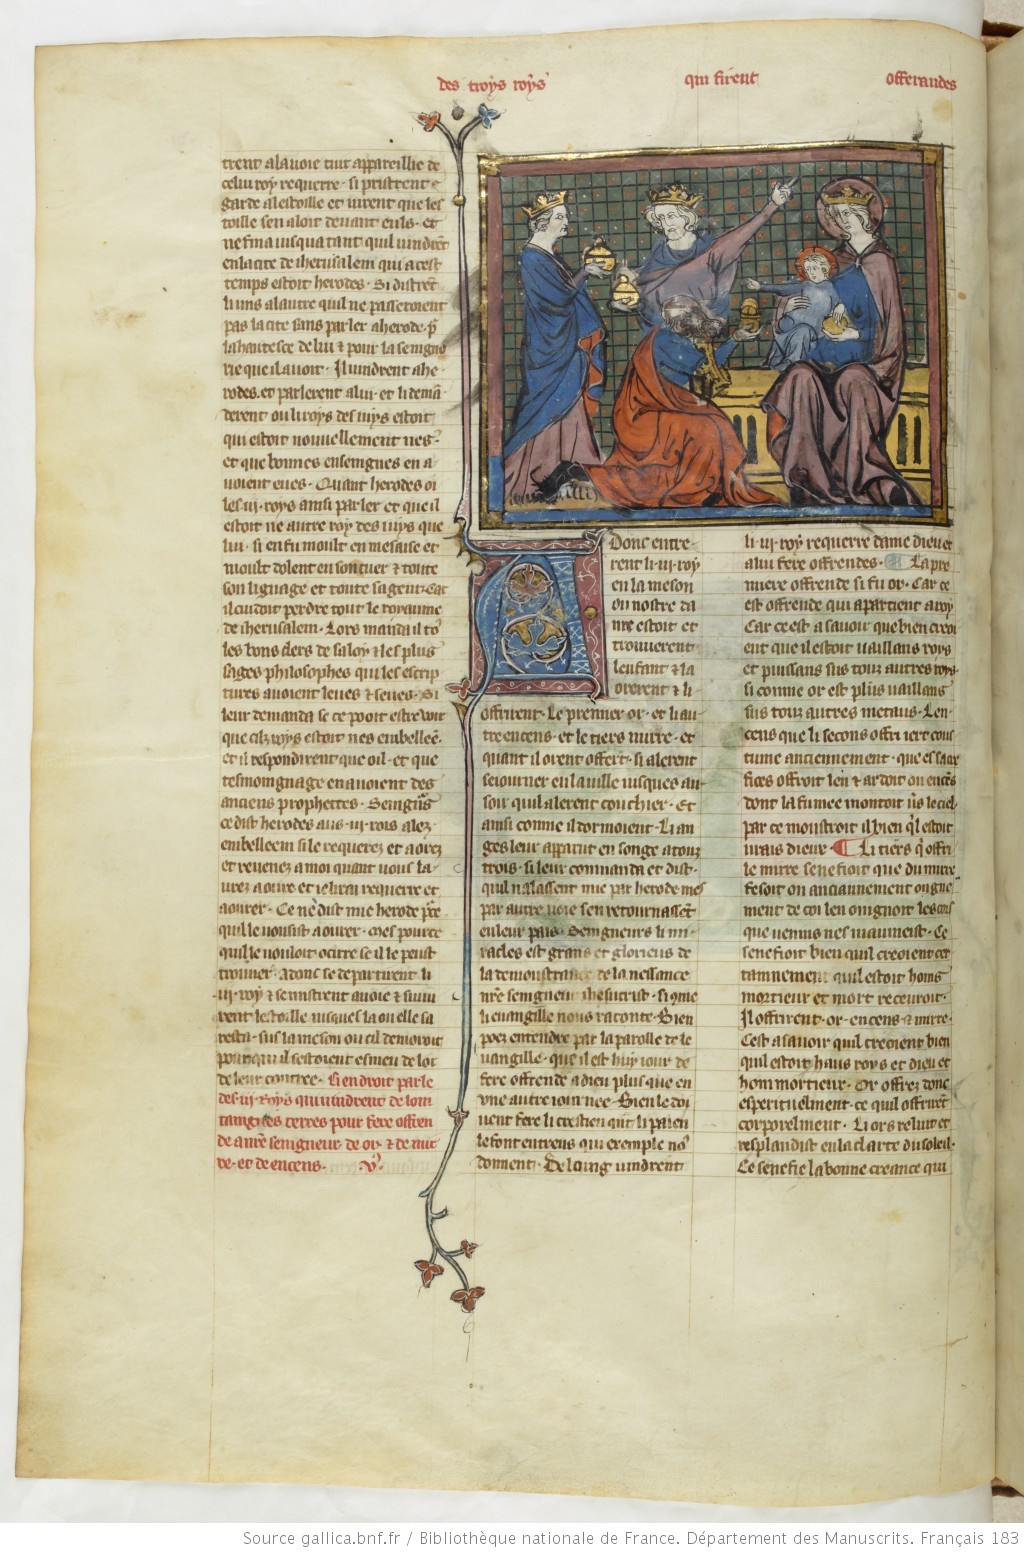 des troys roys qui firent offerandes
trent alauoie tuit appareillie de
celui roy requerre · si pristrent
garde alestoille et uirent que les
toille sen aloit deuant euls · et
ne fina iusqua tant quil uindrẽt
en la cite de iherusalem qui a cest
temps estoit herodes · Si distrẽt
li uns alautre quil ne passeroient
pas la cite sans parler a herode · p̃
la hautesce de lui ⁊ pour la seigno
rie que il auoit · Il uindrent a he
rodes · et parlerent a lui · et li demã
derent ou li roys des iuys estoit
qui estoit nouuellement nes ·
et que bonnes enseingnes en a
uoient eues · Quant herodes oi
les · iii · roys ainsi parler et que il
estoit ne autre roy des iuys que
lui · si en fu moult en mesaise et
moult dolent en son cuer ⁊ toute
son lignage et toute sa gent · Car
il cuidoit perdre tout le royaume
de iherusalem · Lors manda il to9
les bons clers de sa loy ⁊ les plus
sages philosophes qui les escrip
tures auoient leues ⁊ seues · Si
leur demanda se ce pooit estre uoir
que cilz roys estoit nes em belleẽ ·
et il respondirent que oil · et que
tesmoingnage en auoient des
anciens prophettes · Seingñs
ce dist herodes aus · iii · rois alez
em belleem si le requerez et aorez
et reuenez a moi quant uous la
urez aoure et ie lirai requerre et
aourer · Ce ne dist mie herode p̃ce
quil le uousist aourer · mes pource
quil le uouloit ocirre se il le peust
trouuer · adonc se departirent li
iii · roy ⁊ se mistrent a uoie ⁊ suiui
rent lestoille iusques la ou elle sa
resta · sus la meson ou cil demoroit
pour qui il sestoient esmeu de loi
de leur contree · Ci endroit parle
des · iii · roys qui uindrent de loin
taingnes terres pour fere offren
de a nr̃e seingneur de or · ⁊ de mir
re · et de encens ·
A Donc entre
rent li · iii · roy
en la meson
ou nostre da
me estoit et
trouuerent
lenfant ⁊ la
orerent ⁊ li
offrirent · Le premier or · et li au
tre encens · et le tiers mirre · et
quant il orent offert · si alerent
seiourner en la uille iusques au
soir quil alerent couchier · Et
ainsi comme il dormoient · Li an
ges leur apparut en songe a touz
trois · si leur commanda et dist ·
quil nalassent mie par herode mes
par autre uoie sen retournassẽt
en leur pais · Seingneurs li mi
racles est grans et glorieus de
la demoustrance de la nessance
nr̃e seingneur ihesucrist · si 9me
li euangille nous raconte · Bien
poez entendre par la parolle de le
uangille · que il est huy iour de
fere offrende a dieu plus que en
vne autre iournee · Bien le doi
uent fere li crestien qui li paien
le font entreus qui exemple no9
donnent · De loing uindrent
li · iii · roy requerre dame dieu et
a lui fere offrendes · La pre
miere offrende si fu or · Car ce
est offrende qui apartient a roy
Car ce est a sauoir que bien croi
ent que il estoit uaillans roys
et puissans sus touz autres roys
si comme or est plus uaillans
sus touz autres metaus · Len
cens que li secons offri iert cous
tume anciennement · que es sacre
fices offroit len ⁊ ardoit on encẽs
dont la fumee montoit ũs le ciel
par ce moustroit il bien q̃l estoit
urais dieux · Li tiers q̃ offri
le mirre senefioit que du mirre
fesoit on anciannement ongue
ment de coi len oingnoit les cors
que uermins nes maumeist · Ce
senefioit bien quil creoient cer
tainnement quil estoit homs
mortieux et mort receuroit ·
Il offrirent · or · encens ⁊ mirre ·
Cest a sauoir quil creoient bien
quil estoit haus roys et dieu et
hom mortieux · Or offrez donc
esperituelment · ce quil offrirẽt
corporelment · Li ors reluit et
resplandist en la clarte du soleil ·
Ce senefie la bonne creance qui
Source gallica.bnf.fr / Bibliothèque nationale de France. Département des Manuscrits. Français 183